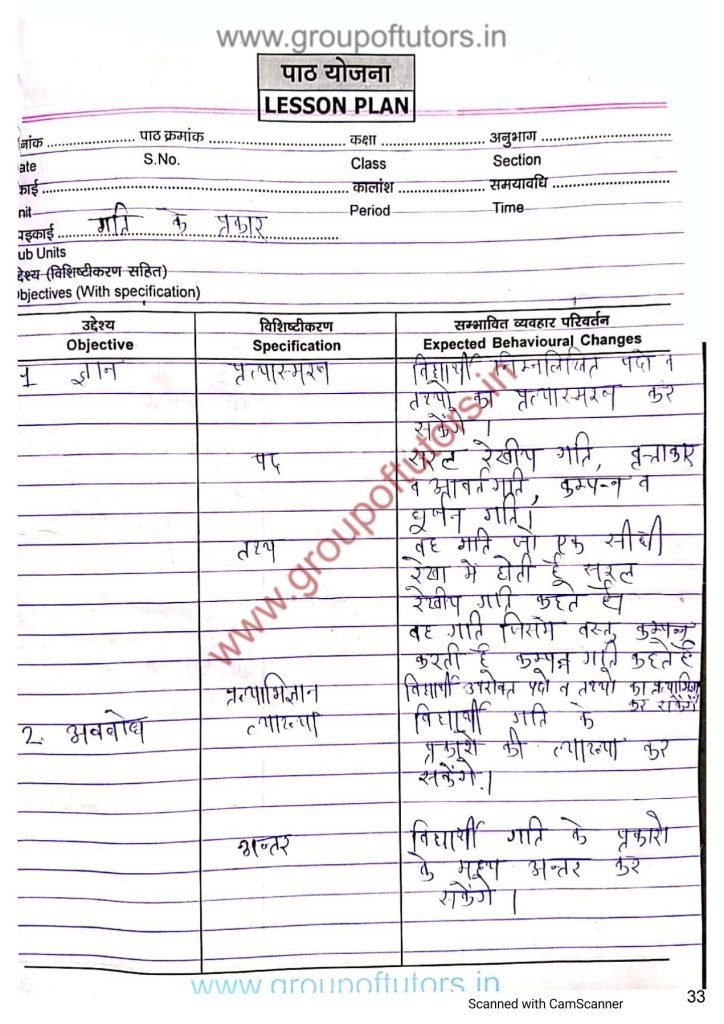 www.groupoftutors.in
पाठ योजना
LESSON PLAN
नांक .................... पाठ क्रमांक .................... कक्षा .................... अनुभाग ....................
ate S.No. Class Section
काई .................... कालांश .................... समयावधि ....................
nit Period Time
पइकाई .... गति के प्रकार ....
ub Units
द्देश्य (विशिष्टीकरण सहित)
bjectives (With specification)
उद्देश्य विशिष्टीकरण सम्भावित व्यवहार परिवर्तन
Objective Specification Expected Behavioural Changes
1 ज्ञान प्रत्यास्मरण विद्यार्थी निम्नलिखित पदो व
तथ्यो का प्रत्यास्मरण कर
सकेंगे ।
पद सरल रेखीय गति, वृत्ताकार
व आवर्तगति, कम्पन्न व
घूर्णन गति।
तथ्य वह गति जो एक सीधी
रेखा में होती है सरल
रेखीय गति कहते है।
वह गति जिसमें वस्तु कम्पन्न
करती है कम्पन्न गति कहते है
प्रत्याभिज्ञान विद्यार्थी उपरोक्त पदो व तथ्यो का प्रत्याभिज्ञा
कर सकेंगें
2. अवबोध व्याख्या विद्यार्थी गति के
प्रकारो की व्याख्या कर
सकेंगे।
अन्तर विद्यार्थी गति के प्रकारो
के मध्य अन्तर कर
सकेंगे ।
www.groupoftutors.in
www.groupoftutors.in
Scanned with CamScanner
33